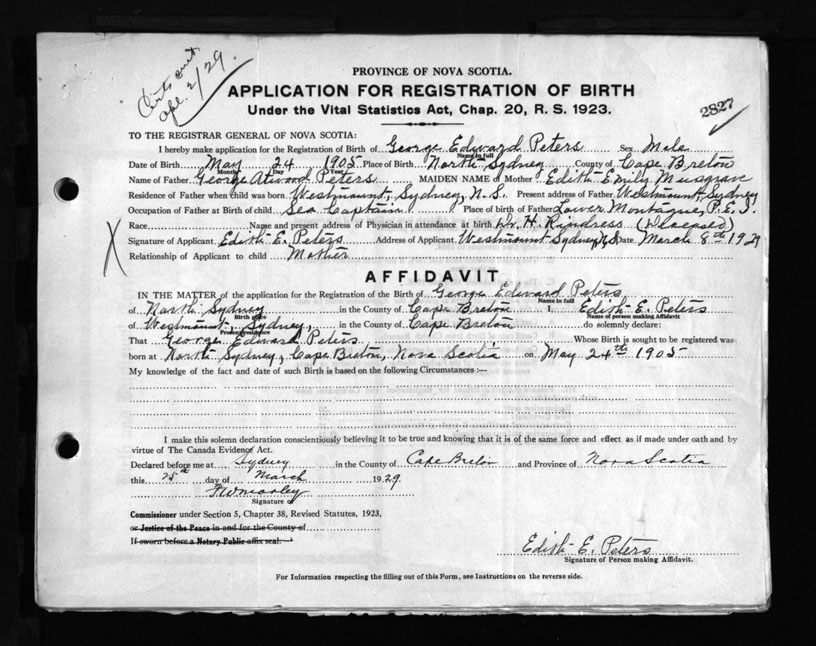 Certs sent
Apl. 2/29.
PROVINCE OF NOVA SCOTIA.
APPLICATION FOR REGISTRATION OF BIRTH
Under the Vital Statistics Act, Chap. 20, R. S. 1923.
2827
TO THE REGISTRAR GENERAL OF NOVA SCOTIA:
I hereby make application for the Registration of Birth of George Edward Peters Sex Male
Name in full
Date of Birth May 24 1905 Place of Birth North Sydney County of Cape Breton
Month Day Year
Name of Father George Atwood Peters MAIDEN NAME of Mother Edith Emily Musgrave
Residence of Father when child was born Westmount, Sydney, N. S. Present address of Father Westmount, Sydney
Occupation of Father at Birth of child Sea Captain Place of birth of Father Lower Montague, P. E. I.
Race Name and present address of Physician in attendance at birth Dr. H. Rindress (Deceased)
Signature of Applicant Edith E. Peters Address of Applicant Westmount Sydney N.S Date March 8th 1929
Relationship of Applicant to child Mother
X
AFFIDAVIT
IN THE MATTER of the application for the Registration of the Birth of George Edward Peters
Name in full
of North Sydney in the County of Cape Breton I, Edith E. Peters
Birth place Name of person making Affidavit
of Westmount, Sydney, in the County of Cape Breton do solemnly declare:
Present residence
That George Edward Peters Whose Birth is sought to be registered was
born at North Sydney, Cape Breton, Nova Scotia on May 24th 1905
My knowledge of the fact and date of such Birth is based on the following Circumstances :—
I make this solemn declaration conscientiously believing it to be true and knowing that it is of the same force and effect as if made under oath and by
virtue of The Canada Evidence Act.
Declared before me at Sydney in the County of Cape Breton and Province of Nova Scotia
this 25th day of March 1929
Signature of
Commissioner under Section 5, Chapter 38, Revised Statutes, 1923,
or Justice of the Peace in and for the County of
If sworn before a Notary Public affix seal.
Edith E. Peters
Signature of Person making Affidavit.
For Information respecting the filling out of this Form, see Instructions on the reverse side.